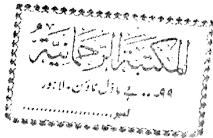 المكتبة الرحمانية
۹۹ ... جے ماڈل ٹاؤن ـ لاہور
نمبر ....................